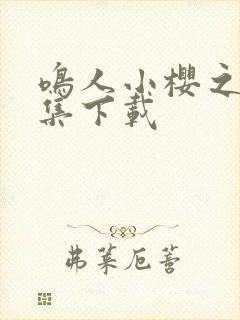 鳴人小櫻之
集下載
弗萊厄薈